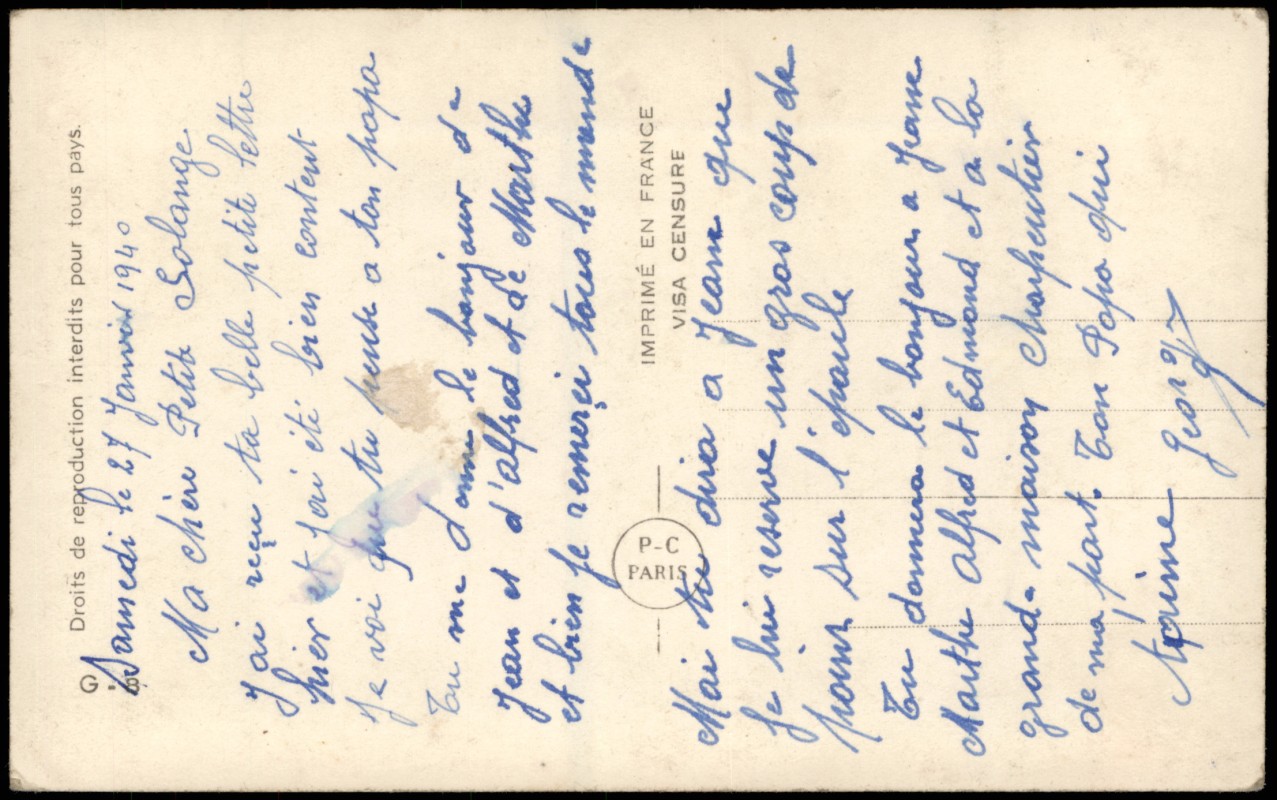 Droits de reproduction interdits pour tous pays.
G
Samedi le 27 Janvier 1940
Ma chère Petite Solange
J'ai reçu ta belle petite lettre
hier et j'ai été bien content
Je voi que tu pense a ton papa
Tu me donne le bonjour de
Jean et d'alfred et de Marthe
et bien je remerçi tous le monde
IMPRIMÉ EN FRANCE
VISA CENSURE
P-C
PARIS
Mai tu dira a Jeanne que
je lui reserve un gros coup de
poing sur l'épaule
Tu donnera le bonjour a Jeanne
Marthe alfred et Edmond et a la
grande maison Charpentier
de ma part. Ton Papa qui
t'aime Georges